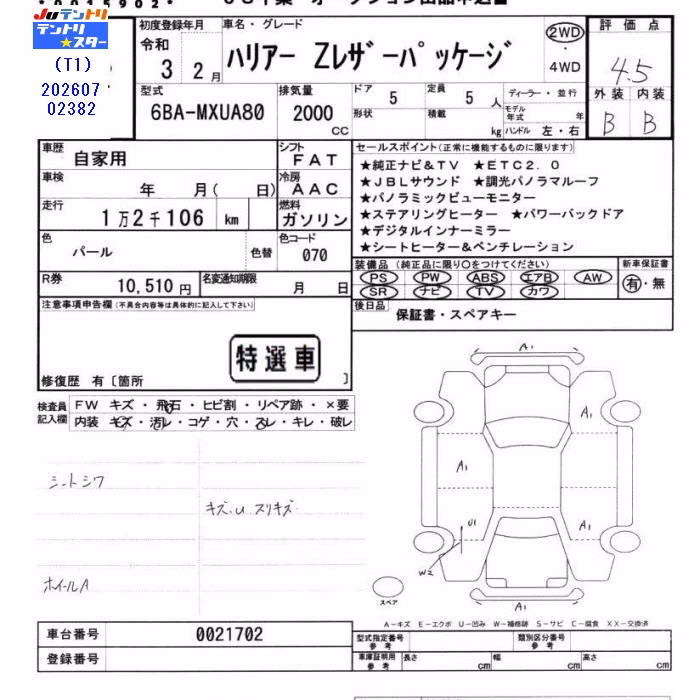 Juテントリ
テントリ★スター
(T1)
202607
02382
初度登録年月
令和
3 2月
車名・グレード
ハリアー Zレザーパッケージ
2WD
4WD
評価点
4.5
外装 内装
B B
型式
6BA-MXUA80
排気量
2000
CC
ドア 5
形状
定員 5 人
積載 kg
ディーラー・並行
モデル年式 年
ハンドル 左・右
車歴 自家用
車検 年 月( 日)
走行 1万2千106 km
シフト FAT
冷房 AAC
燃料 ガソリン
色 パール
色替
色コード 070
R券 10,510円
名変通知期限 月 日
セールスポイント(正常に機能するものに限ります)
★純正ナビ&TV ★ETC2.0
★JBLサウンド ★調光パノラマルーフ
★パノラミックビューモニター
★ステアリングヒーター ★パワーバックドア
★デジタルインナーミラー
★シートヒーター&ベンチレーション
装備品(純正品に限り○をつけてください)
PS PW ABS エアB AW
SR ナビ TV カワ
新車保証書
有・無
後日品
保証書・スペアキー
注意事項申告欄(不具合内容等は具体的に記入して下さい)
特選車
修復歴 有〔箇所 〕
検査員記入欄
FW キズ・飛石・ヒビ割・リペア跡・×要
内装 キズ・汚レ・コゲ・穴・スレ・キレ・破レ
シートシワ
キズ.U.スリキズ
ホイールA
A1
A1
A1
U1
A1
W2
A1
スペア
A-キズ E-エクボ U-凹み W-補修跡 S-サビ C-腐食 XX-交換済
車台番号 0021702
登録番号
型式指定番号 参考
類別区分番号 参考
車庫証明用 参考
長さ cm 幅 cm 高さ cm